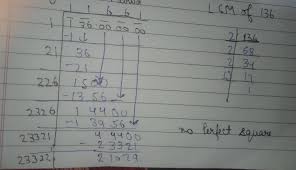 1 1 6 6 1
1 1 36.00 00 00
-1
21 36
-21
226 1500
-13 56
2326 14400
-139 56
23321 44400
-23321
23322 21079
LCM of 136
2 136
2 68
2 34
17
1
no Perfect square